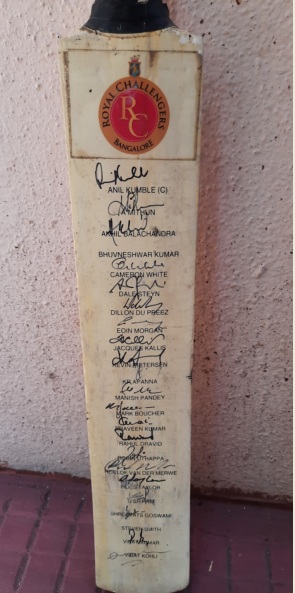 ROYAL CHALLENGERS
RC
BANGALORE
ANIL KUMBLE (C)
A MITHUN
AKHIL BALACHANDRA
BHUVNESHWAR KUMAR
CAMERON WHITE
DALE STEYN
DILLON DU PREEZ
EOIN MORGAN
JACQUES KALLIS
KEVIN PIETERSEN
KP APANNA
MANISH PANDEY
MARK BOUCHER
PRAVEEN KUMAR
RAHUL DRAVID
ROBIN UTHAPPA
ROELOF VAN DER MERWE
ROSS TAYLOR
GOSWAMI
STEVEN SMITH
VINAY KUMAR
VIRAT KOHLI